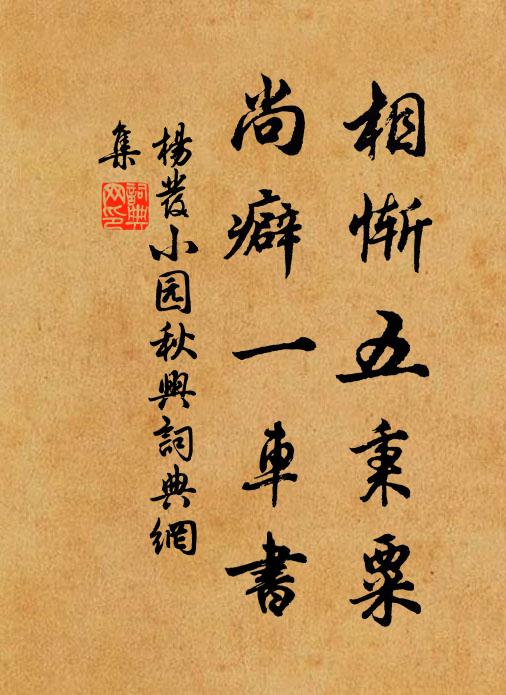 相慚五秉粟
尚癖一車書
楊發小园秋興詞典網
集
詞典
网印